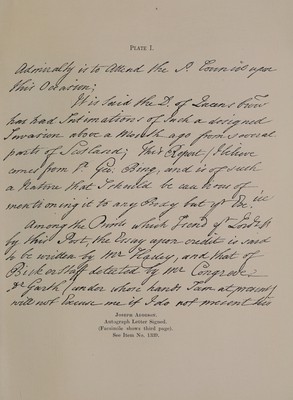 PLATE I.
Admiralty is to attend the P. Council upon
this Occasion;
It is said the D. of Queensbrow
has had Intimations of such a designed
Invasion above a Month ago from several
parts of Scotland; This Report I believe
comes from Sr. Geo. Bing, and is of such
a Nature that I should be cautious of
mentioning it to any Body but yr Exc.
Among the Prints which I send yr Lordsp
by this Post, the Essay upon credit is said
to be written by Mr Harley, and that of
Bickerstaff detected by Mr Congreve.
Dr Garth under whose hands I am at present
will not Excuse me if I do not present his
JOSEPH ADDISON.
Autograph Letter Signed.
(Facsimile shows third page).
See Item No. 1339.